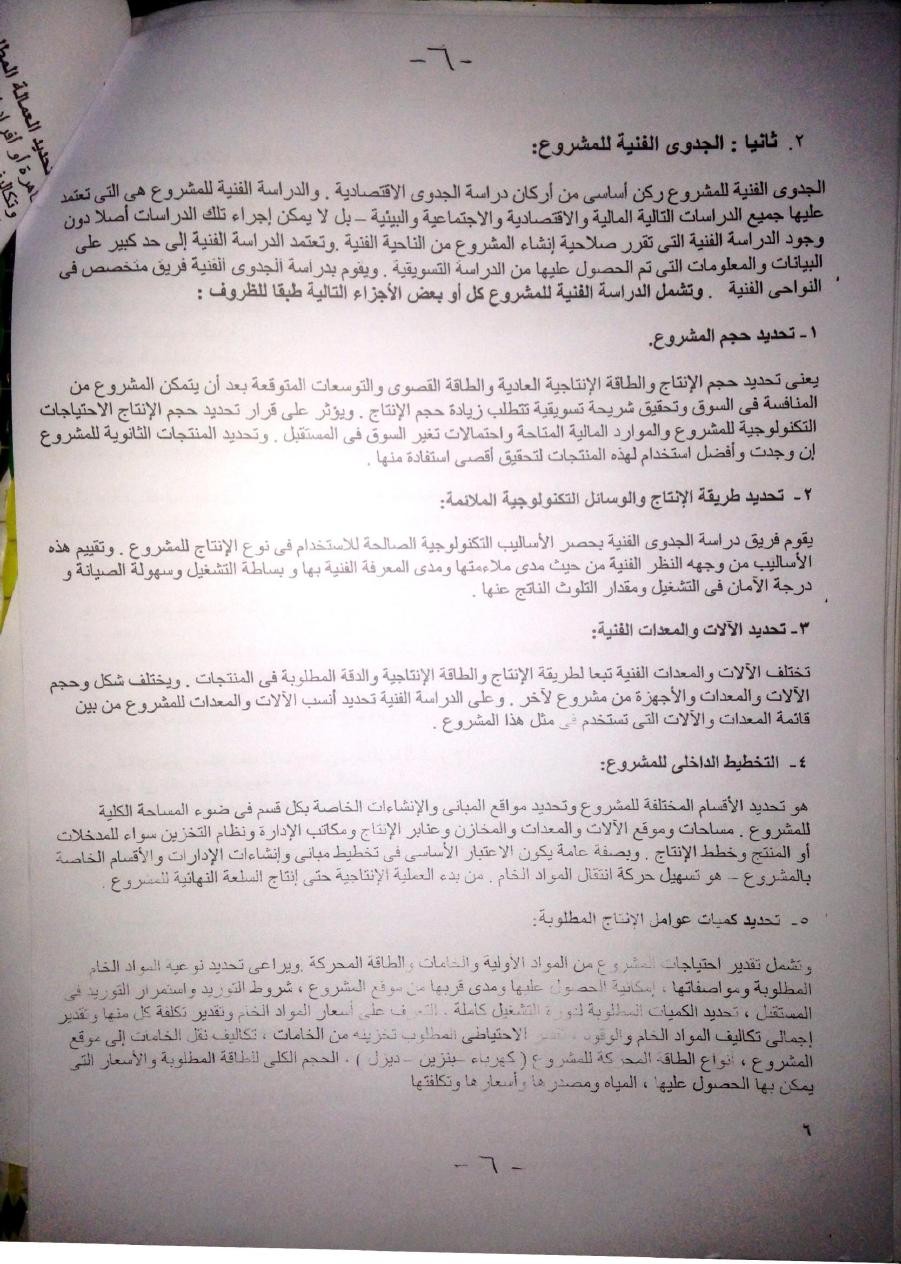 -٦-
تحديد العمالة
٢. ثانيا : الجدوى الفنية للمشروع:
الجدوى الفنية للمشروع ركن أساسى من أركان دراسة الجدوى الاقتصادية . والدراسة الفنية للمشروع هى التى تعتمد
عليها جميع الدراسات التالية المالية والاقتصادية والاجتماعية والبيئية – بل لا يمكن إجراء تلك الدراسات أصلا دون
وجود الدراسة الفنية التى تقرر صلاحية إنشاء المشروع من الناحية الفنية .وتعتمد الدراسة الفنية إلى حد كبير على
البيانات والمعلومات التى تم الحصول عليها من الدراسة التسويقية . ويقوم بدراسة الجدوى الفنية فريق متخصص فى
النواحى الفنية . وتشمل الدراسة الفنية للمشروع كل أو بعض الأجزاء التالية طبقا للظروف :
١- تحديد حجم المشروع.
يعنى تحديد حجم الإنتاج والطاقة الإنتاجية العادية والطاقة القصوى والتوسعات المتوقعة بعد أن يتمكن المشروع من
المنافسة فى السوق وتحقيق شريحة تسويقية تتطلب زيادة حجم الإنتاج . ويؤثر على قرار تحديد حجم الإنتاج الاحتياجات
التكنولوجية للمشروع والموارد المالية المتاحة واحتمالات تغير السوق فى المستقبل . وتحديد المنتجات الثانوية للمشروع
إن وجدت وأفضل استخدام لهذه المنتجات لتحقيق أقصى استفادة منها .
٢- تحديد طريقة الإنتاج والوسائل التكنولوجية الملائمة:
يقوم فريق دراسة الجدوى الفنية بحصر الأساليب التكنولوجية الصالحة للاستخدام فى نوع الإنتاج للمشروع . وتقييم هذه
الأساليب من وجهه النظر الفنية من حيث مدى ملاءمتها ومدى المعرفة الفنية بها و بساطة التشغيل وسهولة الصيانة و
درجة الآمان فى التشغيل ومقدار التلوث الناتج عنها .
٣- تحديد الآلات والمعدات الفنية:
تختلف الآلات والمعدات الفنية تبعا لطريقة الإنتاج والطاقة الإنتاجية والدقة المطلوبة فى المنتجات . ويختلف شكل وحجم
الآلات والمعدات والأجهزة من مشروع لآخر . وعلى الدراسة الفنية تحديد أنسب الآلات والمعدات للمشروع من بين
قائمة المعدات والآلات التى تستخدم فى مثل هذا المشروع .
٤- التخطيط الداخلى للمشروع:
هو تحديد الأقسام المختلفة للمشروع وتحديد مواقع المبانى والإنشاءات الخاصة بكل قسم فى ضوء المساحة الكلية
للمشروع . مساحات وموقع الآلات والمعدات والمخازن وعنابر الإنتاج ومكاتب الإدارة ونظام التخزين سواء للمدخلات
أو المنتج وخطط الإنتاج . وبصفة عامة يكون الاعتبار الأساسى فى تخطيط مبانى وإنشاءات الإدارات والأقسام الخاصة
بالمشروع – هو تسهيل حركة انتقال المواد الخام . من بدء العملية الإنتاجية حتى إنتاج السلعة النهائية للمشروع .
٥- تحديد كميات عوامل الإنتاج المطلوبة:
وتشمل تقدير احتياجات المشروع من المواد الأولية والخامات والطاقة المحركة .ويراعى تحديد نوعية المواد الخام
المطلوبة ومواصفاتها ، إمكانية الحصول عليها ومدى قربها من موقع المشروع ، شروط التوريد واستمرار التوريد فى
المستقبل ، تحديد الكميات المطلوبة لدورة التشغيل كاملة . التعرف على أسعار المواد الخام وتقدير تكلفة كل منها وتقدير
إجمالى تكاليف المواد الخام والوقود ، الاحتياطى المطلوب تخزينه من الخامات ، تكاليف نقل الخامات إلى موقع
المشروع ، أنواع الطاقة المحركة للمشروع ( كهرباء –بنزين – ديزل ) ، الحجم الكلى للطاقة المطلوبة والأسعار التى
يمكن بها الحصول عليها ، المياه ومصدرها وأسعارها وتكلفتها
٦
-٦-